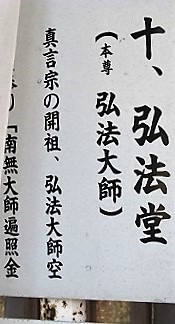 十、弘法堂
(本尊 弘法大師)
真言宗の開祖、弘法大師空
り「南無大師遍照金